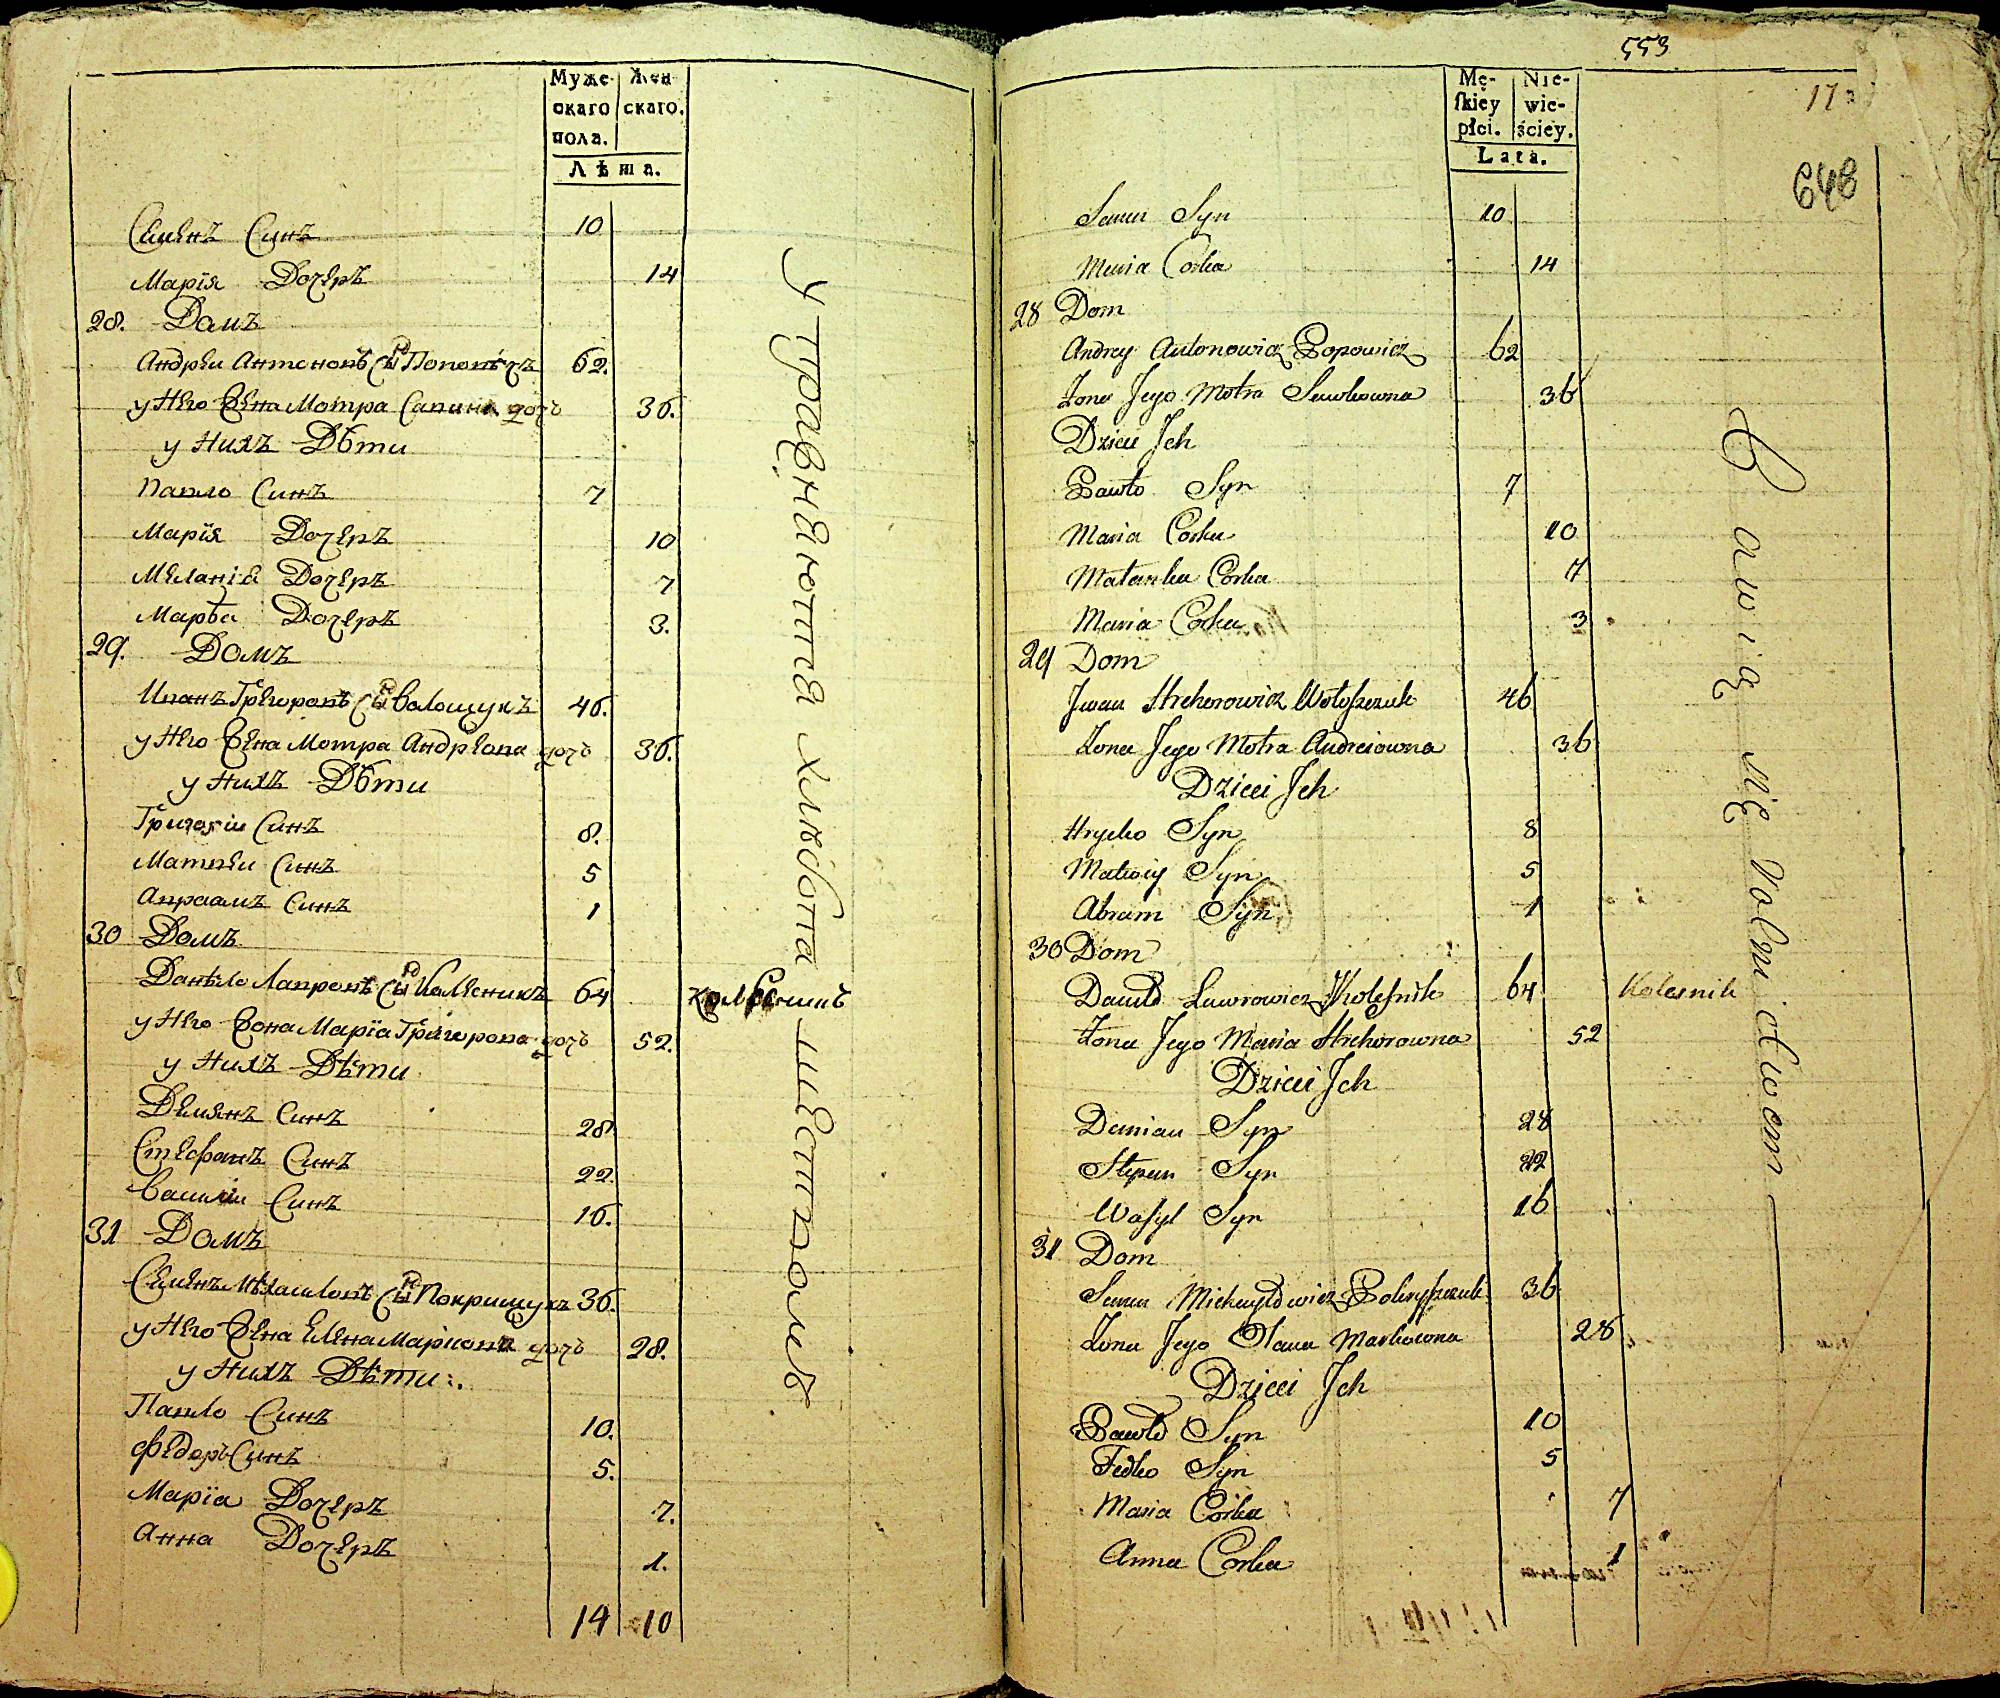 Муже-
скаго
пола.
Жен-
скаго.
Лѣта.
Семенъ Синъ 10
Марїя Дочеръ 14
28. Домъ
Андреи Антоновъ Сынъ Поповичъ 62.
у Него Жена Мотра Савина дочь 36.
у Нихъ Дѣти
Павло Синъ 7
Марїя Дочеръ 10
Меланіа Дочеръ 7
Марѳа Дочеръ 3.
29. Домъ
Иванъ Грегоровъ Сынъ Валощукъ 46.
у Него Жена Мотра Андреова дочь 36.
у Нихъ Дѣти
Григоріи Синъ 8.
Матвеи Синъ 5
Авраамъ Синъ 1
30 Домъ
Данѣло Лавровъ Сынъ Колесникъ 64
у Него Жона Марїа Григорова дочь 52.
у Нихъ Дѣти
Демянъ Синъ 28
Стефанъ Синъ 22.
Василіи Синъ 16.
31 Домъ
Семенъ Мѣхаиловъ Сынъ Покрищукъ 36.
у Него Жена Елена Маркова дочь 28.
у Нихъ Дѣти
Павло Синъ 10.
Федоръ Синъ 5.
Марїа Дочеръ 7.
Анна Дочеръ 1.
14 10
Упражняются хлебопашеством
553
17
648
Mę-
skiey
płci.
Nie-
wie-
ściey.
Lata.
Semen Syn 10
Maria Corka 14
28 Dom
Andrey Antonowicz Popowicz 62
Żona Jego Motra Sawkowna 36
Dzieci Jch
Pawło Syn 7
Maria Corka 10
Małanka Corka 7
Maria Corka 3
29 Dom
Jwan Hrehorowicz Wołoszczuk 46
Żona Jego Motra Andreiowna 36
Dzieci Jch
Hryćko Syn 8
Matwiy Syn 5
Abram Syn 1
30 Dom
Daniło Lawrowicz Kolesnik 64 Kolesnik
Żona Jego Maria Hrehorowna 52
Dzieci Jch
Demian Syn 28
Stepan Syn 22
Wasyl Syn 16
31 Dom
Semen Michayłowicz Pokryszczuk 36
Żona Jego Olana Markowna 28
Dzieci Jch
Pawło Syn 10
Fedko Syn 5
Maria Corka 7
Anna Corka 1
Bawią się Rolnictwem